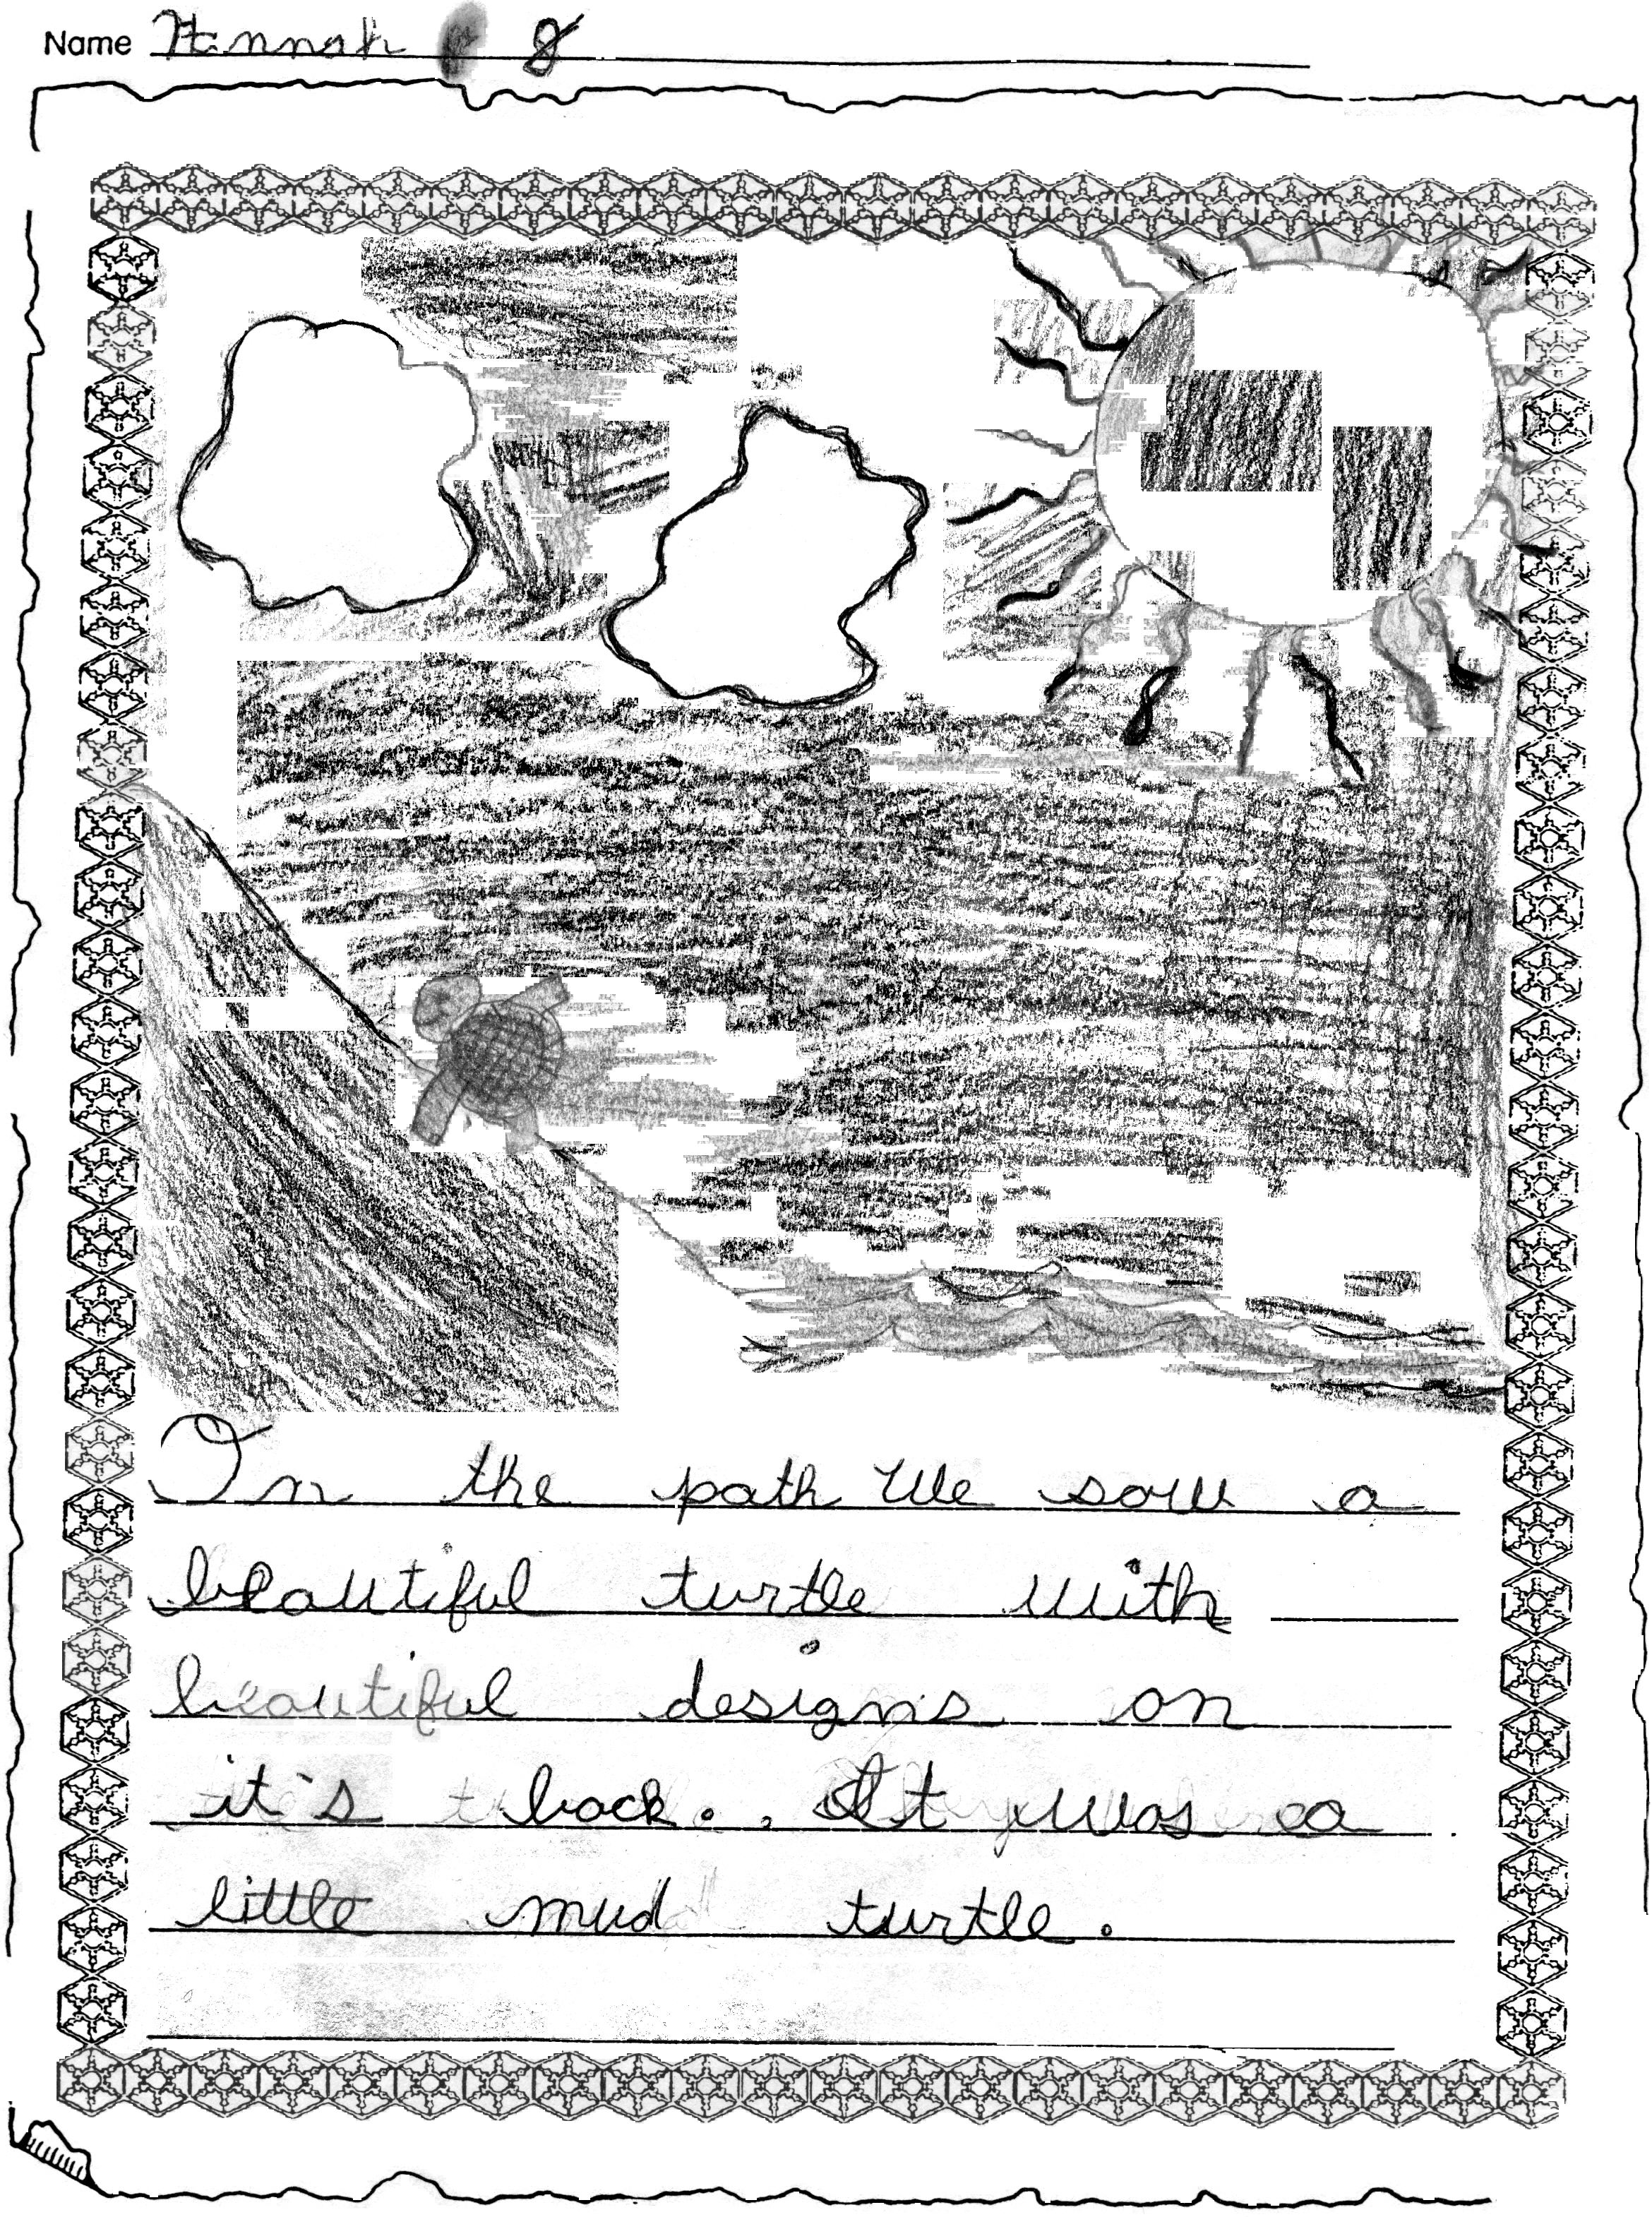 Name Hannah g
On the path we saw a
beautiful turtle with
beautiful designs on
it's back. It was a
little mud turtle.